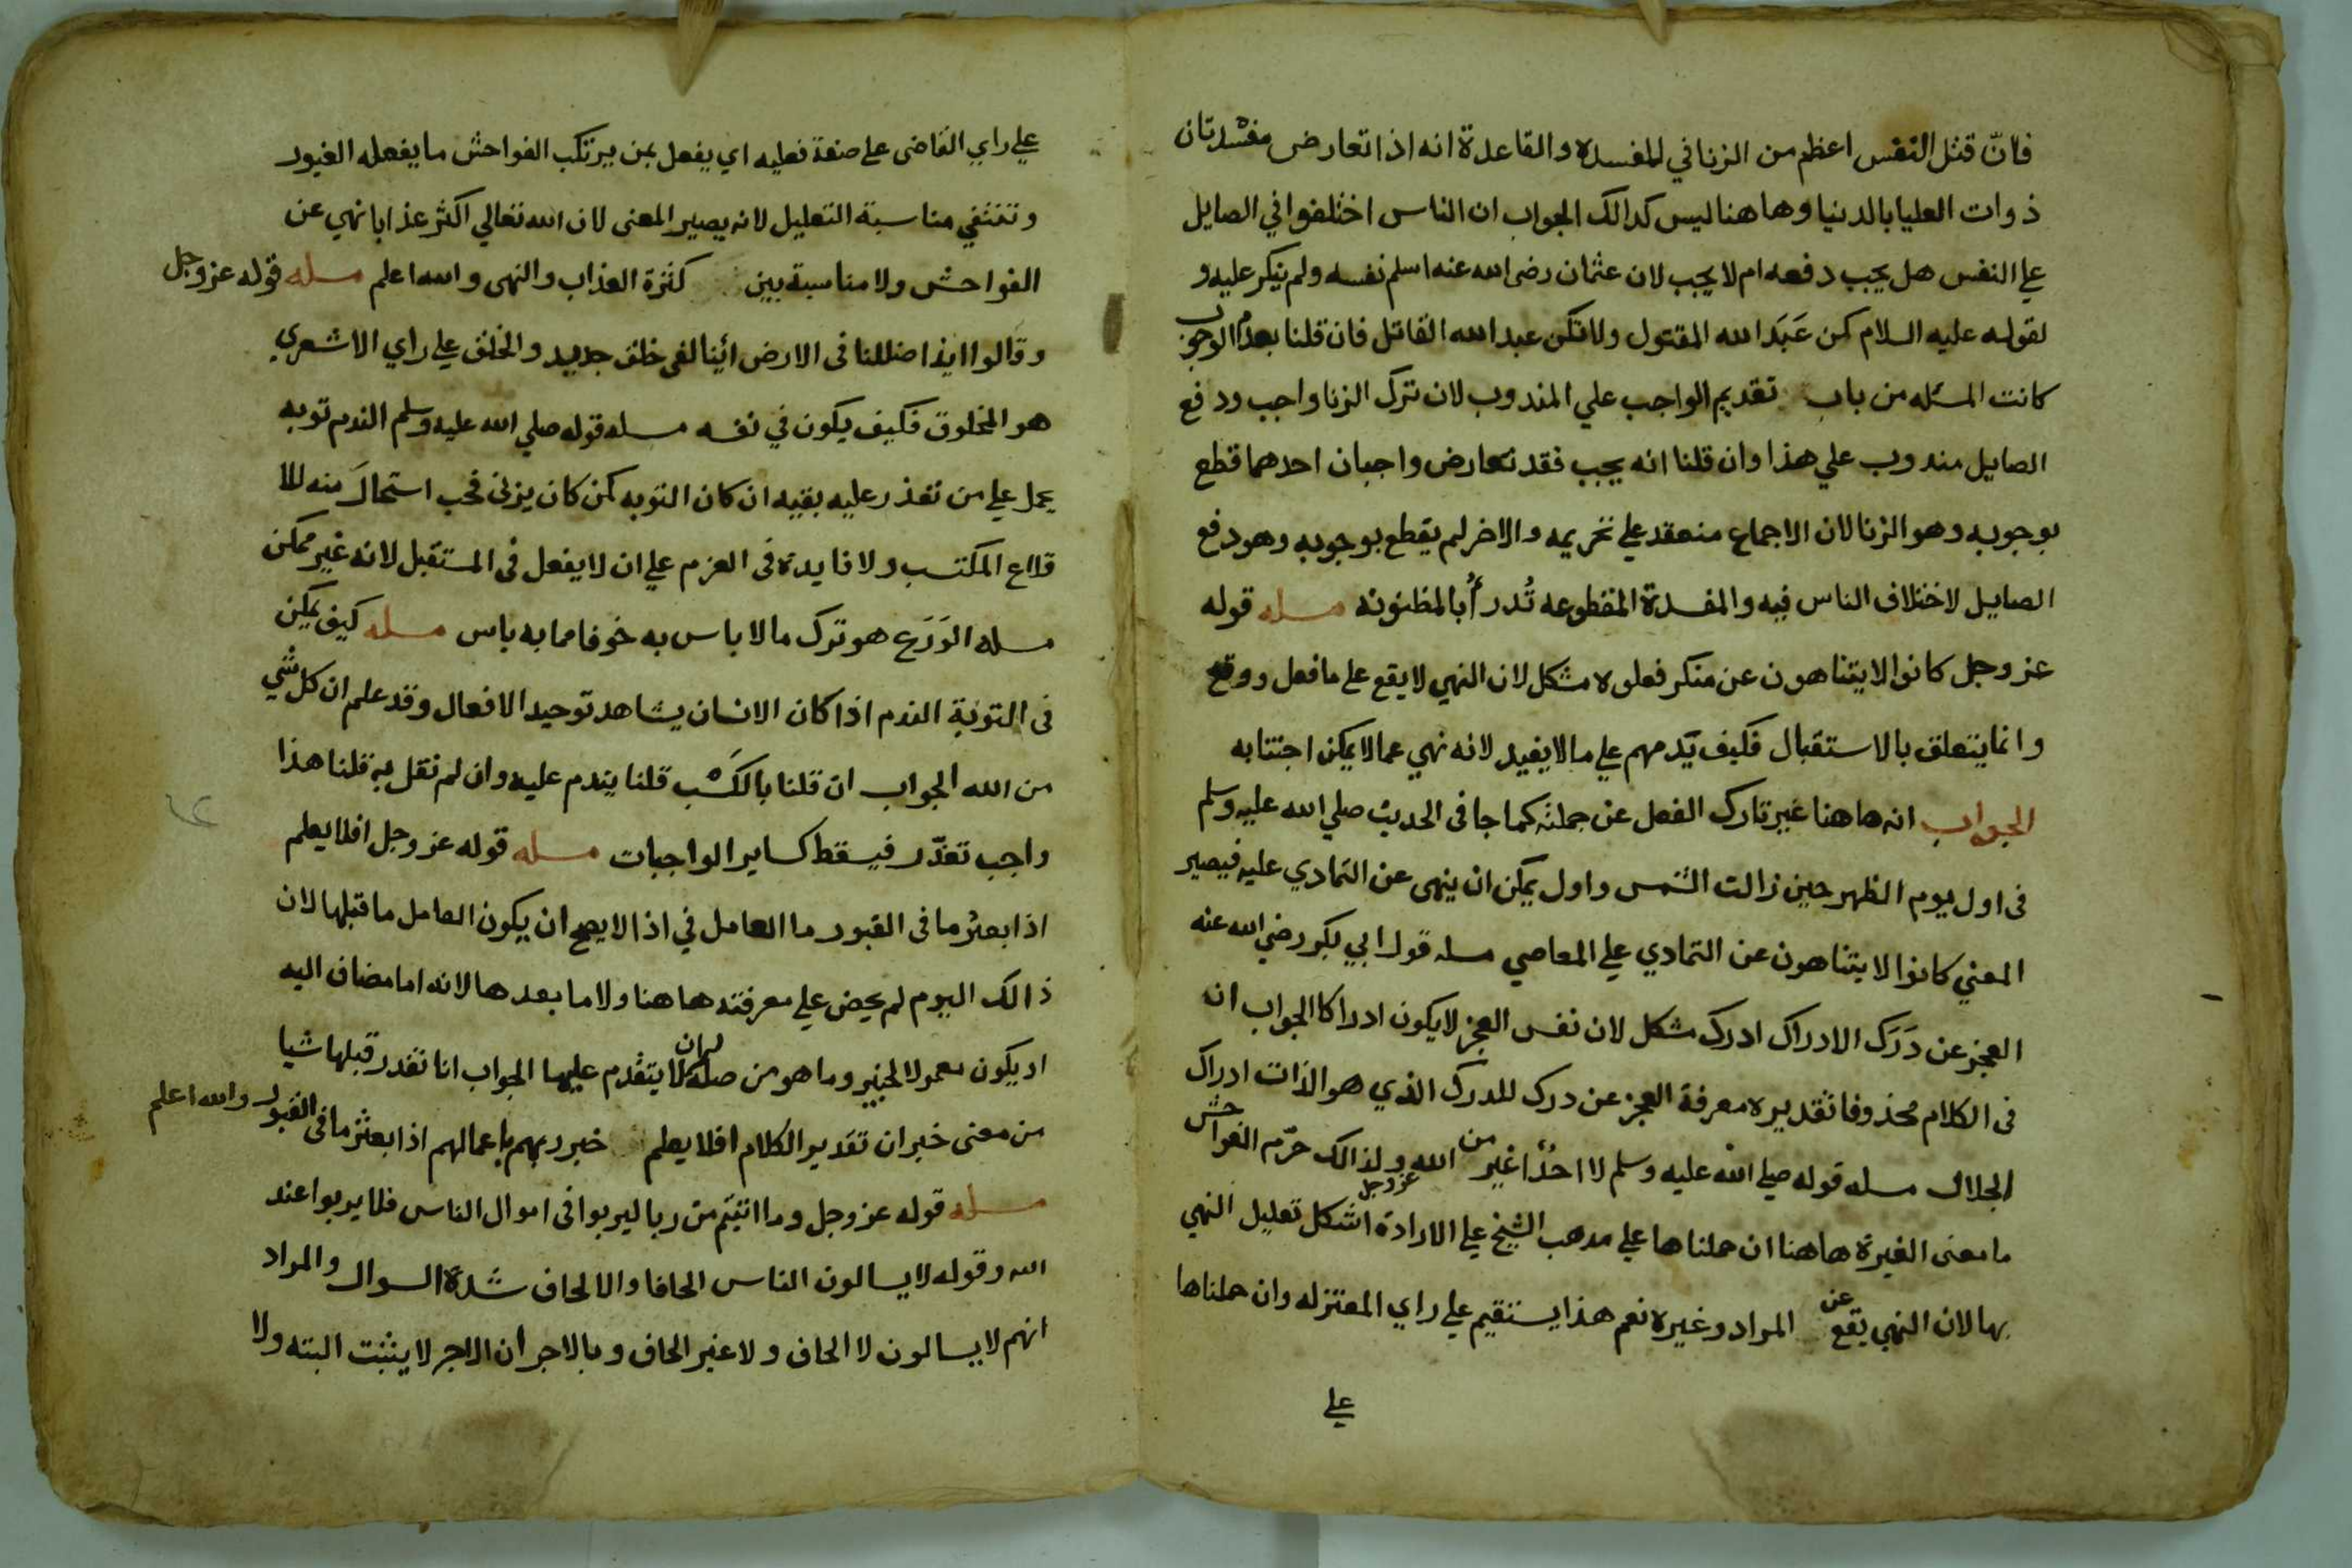 فانّ قتل النفس اعظم من الزنا في المفسده والقاعدة انه اذا تعارض مفسدتان
ذوات العليا بالدنيا وهاهنا ليس كدالك الجواب ان الناس اختلفوا في الصايل
علي النفس هل يجب دفعه ام لا يجب لان عثمان رضى الله عنه اسلم نفسه ولم ينكر عليه و
لقوله عليه السلام كن عَبدَ الله المقتول ولا تكن عبد الله القاتل فان قلنا بعدم الوجوب
كانت المسئله من باب تقديم الواجب علي المندوب لان ترك الزنا واجب ودفع
الصايل مندوب علي هذا وان قلنا انه يجب فقد تعارض واجبان احدهما قطع
بوجوبه وهو الزنا لان الاجماع منعقد علي تحريمه والاخر لم يقطع بوجوبه وهو دفع
الصايل لاختلاف الناس فيه والمفسدة المقطوعه تُدرأُ بالمظنونه مسله قوله
عز وجل كانوا لا يتناهون عن منكر فعلوه مشكل لان النهي لا يقع علي ما فعل ووقع
وانما يتعلق بالاستقبال فكيف يّدمهم علي ما لا يفيد لانه نهي عما لا يمكن اجتنابه
الجواب انه هاهنا غير تارك الفعل عن جملته كما جا فى الحديث صلي الله عليه وسلم
فى اول يوم الظهر حين زالت الشمس واول يمكن ان ينهى عن التمادي عليه فيصير
المعني كانوا لا يتناهون عن التمادي علي المعاصي مسله قول ابي بكر رضي الله عنه
العجز عن دَرَك الادراك ادرك مشكل لان نفس العجز لا يكون ادراكا الجواب ان
فى الكلام محذوفا تقديره معرفة العجز عن درك للدرك الذي هو الذات ادراك
الجلال مسله قوله صلي الله عليه وسلم لا احدٌ اغير من الله عز وجل ولذالك حرّم الفواحش
ما معنى الغيرة هاهنا ان حملناها علي مدهب الشيخ علي الارادة اشكل تعليل النهي
بها لان النهي يقع عن المراد وغيره نعم هذا يستقيم علي راي المعتزله وان حملناها
علي
علي راي القاضى علي صفة فعليه اي يفعل بمن يرتكب الفواحش ما يفعله الغيور
وتنتفي مناسبة التعليل لانه يصير المعنى لان الله تعالي اكثر عذابا نهي عن
الفواحش ولا مناسبة بين كثرة العذاب والنهى والله اعلم مسله قوله عز وجل
وقالوا ايذا ضللنا فى الارض ائينا لفى خلق جديد والخلق علي راي الاشعري
هو المخلوق فكيف يكون في نفسه مسله قوله صلي الله عليه وسلم الندم توبه
يحمل علي من تعذر عليه بقيه اركان التوبه كمن كان يزنى فجب استحالَ منه للا
قلاع المكتسب ولا فايدة فى العزم علي ان لا يفعل فى المستقبل لانه غير ممكن
مسله الوَرَع هو ترك ما لا باس به خوفا مما به باس مسله كيف يمكن
فى التوبة الندم اذا كان الانسان يشاهد توحيد الافعال وقد علم ان كل شي
من الله الجواب ان قلنا بالكَسْب قلنا يندم عليه وان لم نقل به قلنا هذا
واجب تعذّر فيسقط كساير الواجبات مسله قوله عز وجل افلا يعلم
اذا بعثر ما فى القبور ما العامل في اذا لا يصح ان يكون العامل ما قبلها لان
ذالك اليوم لم يحض علي معرفته هاهنا ولا ما بعدها لانه اما مضاف اليه
او يكون معمولا لخبير وما هو من صلة ان لا يتقدم عليها الجواب انا نقدر قبلها شيا
من معنى خبر ان تقدير الكلام افلا يعلم خبر ربهم باعمالهم اذا بعثر ما فى القبور والله اعلم
مسله قوله عز وجل وما اتيتم من ربا ليربوا فى اموال الناس فلا يربوا عند
الله وقوله لا يسالون الناس الحافا والالحاف شدة السوال والمراد
انهم لا يسالون لا الحاف ولا غير الحاف وبالاجر ان الاجر لا يثبت البته ولا